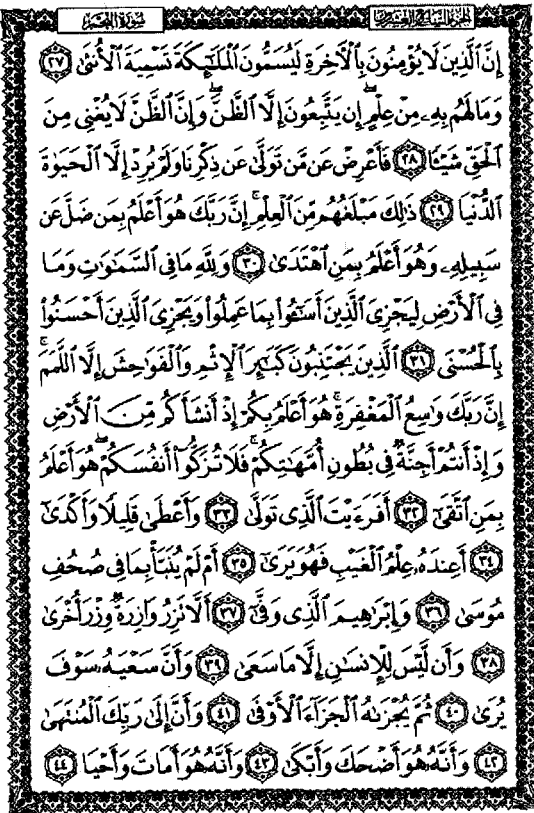 سورة النجم الجزء السابع والعشرون
إِنَّ ٱلَّذِينَ لَا يُؤۡمِنُونَ بِٱلۡأٓخِرَةِ لَيُسَمُّونَ ٱلۡمَلَٰٓئِكَةَ تَسۡمِيَةَ ٱلۡأُنثَىٰ ٢٧
وَمَا لَهُم بِهِۦ مِنۡ عِلۡمٍۖ إِن يَتَّبِعُونَ إِلَّا ٱلظَّنَّۖ وَإِنَّ ٱلظَّنَّ لَا يُغۡنِي مِنَ
ٱلۡحَقِّ شَيۡـٔٗا ٢٨ فَأَعۡرِضۡ عَن مَّن تَوَلَّىٰ عَن ذِكۡرِنَا وَلَمۡ يُرِدۡ إِلَّا ٱلۡحَيَوٰةَ
ٱلدُّنۡيَا ٢٩ ذَٰلِكَ مَبۡلَغُهُم مِّنَ ٱلۡعِلۡمِۚ إِنَّ رَبَّكَ هُوَ أَعۡلَمُ بِمَن ضَلَّ عَن
سَبِيلِهِۦ وَهُوَ أَعۡلَمُ بِمَنِ ٱهۡتَدَىٰ ٣٠ وَلِلَّهِ مَا فِي ٱلسَّمَٰوَٰتِ وَمَا
فِي ٱلۡأَرۡضِ لِيَجۡزِيَ ٱلَّذِينَ أَسَٰٓـُٔواْ بِمَا عَمِلُواْ وَيَجۡزِيَ ٱلَّذِينَ أَحۡسَنُواْ
بِٱلۡحُسۡنَى ٣١ ٱلَّذِينَ يَجۡتَنِبُونَ كَبَٰٓئِرَ ٱلۡإِثۡمِ وَٱلۡفَوَٰحِشَ إِلَّا ٱللَّمَمَۚ
إِنَّ رَبَّكَ وَٰسِعُ ٱلۡمَغۡفِرَةِۚ هُوَ أَعۡلَمُ بِكُمۡ إِذۡ أَنشَأَكُم مِّنَ ٱلۡأَرۡضِ
وَإِذۡ أَنتُمۡ أَجِنَّةٞ فِي بُطُونِ أُمَّهَٰتِكُمۡۖ فَلَا تُزَكُّوٓاْ أَنفُسَكُمۡۖ هُوَ أَعۡلَمُ
بِمَنِ ٱتَّقَىٰٓ ٣٢ أَفَرَءَيۡتَ ٱلَّذِي تَوَلَّىٰ ٣٣ وَأَعۡطَىٰ قَلِيلٗا وَأَكۡدَىٰٓ
٣٤ أَعِندَهُۥ عِلۡمُ ٱلۡغَيۡبِ فَهُوَ يَرَىٰٓ ٣٥ أَمۡ لَمۡ يُنَبَّأۡ بِمَا فِي صُحُفِ
مُوسَىٰ ٣٦ وَإِبۡرَٰهِيمَ ٱلَّذِي وَفَّىٰٓ ٣٧ أَلَّا تَزِرُ وَازِرَةٞ وِزۡرَ أُخۡرَىٰ
٣٨ وَأَن لَّيۡسَ لِلۡإِنسَٰنِ إِلَّا مَا سَعَىٰ ٣٩ وَأَنَّ سَعۡيَهُۥ سَوۡفَ
يُرَىٰ ٤٠ ثُمَّ يُجۡزَىٰهُ ٱلۡجَزَآءَ ٱلۡأَوۡفَىٰ ٤١ وَأَنَّ إِلَىٰ رَبِّكَ ٱلۡمُنتَهَىٰ
٤٢ وَأَنَّهُۥ هُوَ أَضۡحَكَ وَأَبۡكَىٰ ٤٣ وَأَنَّهُۥ هُوَ أَمَاتَ وَأَحۡيَا ٤٤